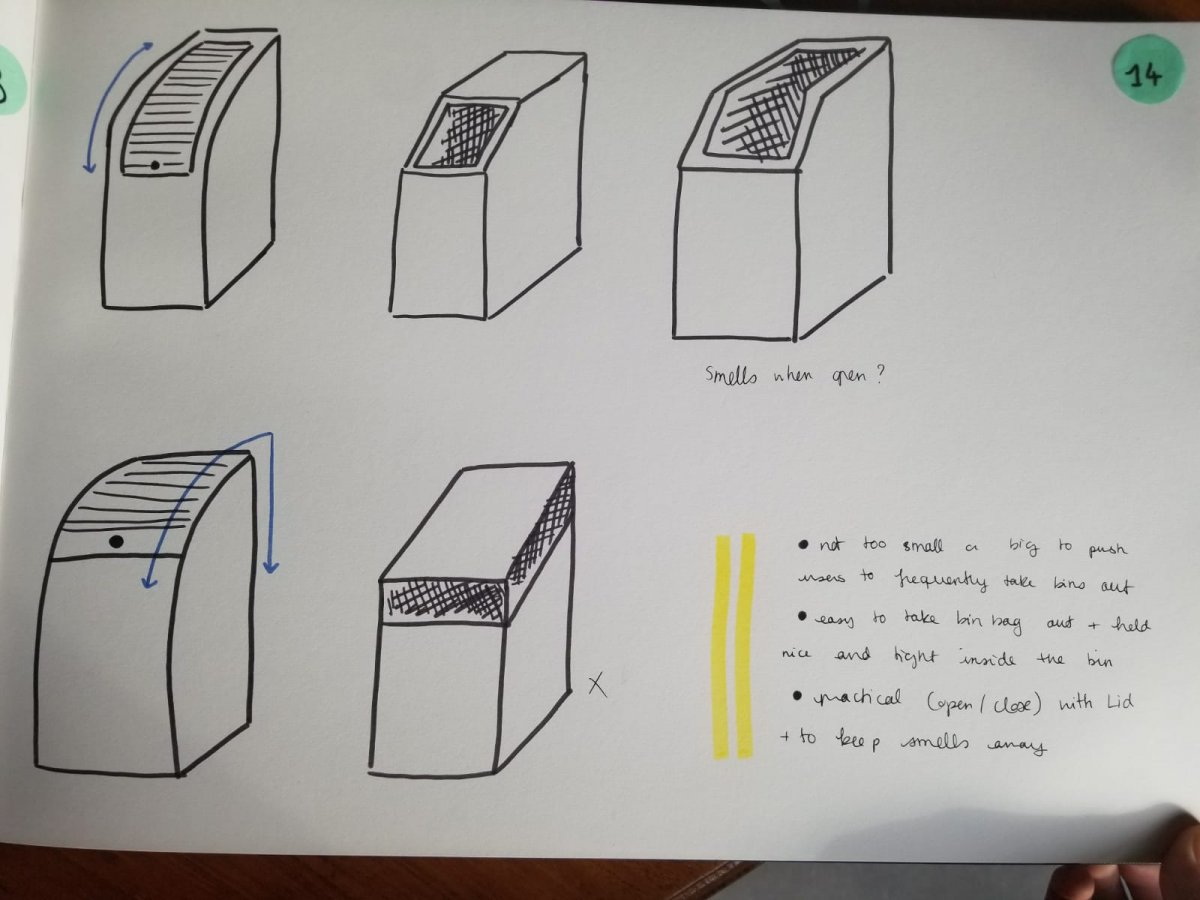 14
Smells when open?
X
• not too small or big to push
users to frequently take bins out
• easy to take bin bag out + held
nice and tight inside the bin
• practical (open/close) with Lid
+ to keep smells away